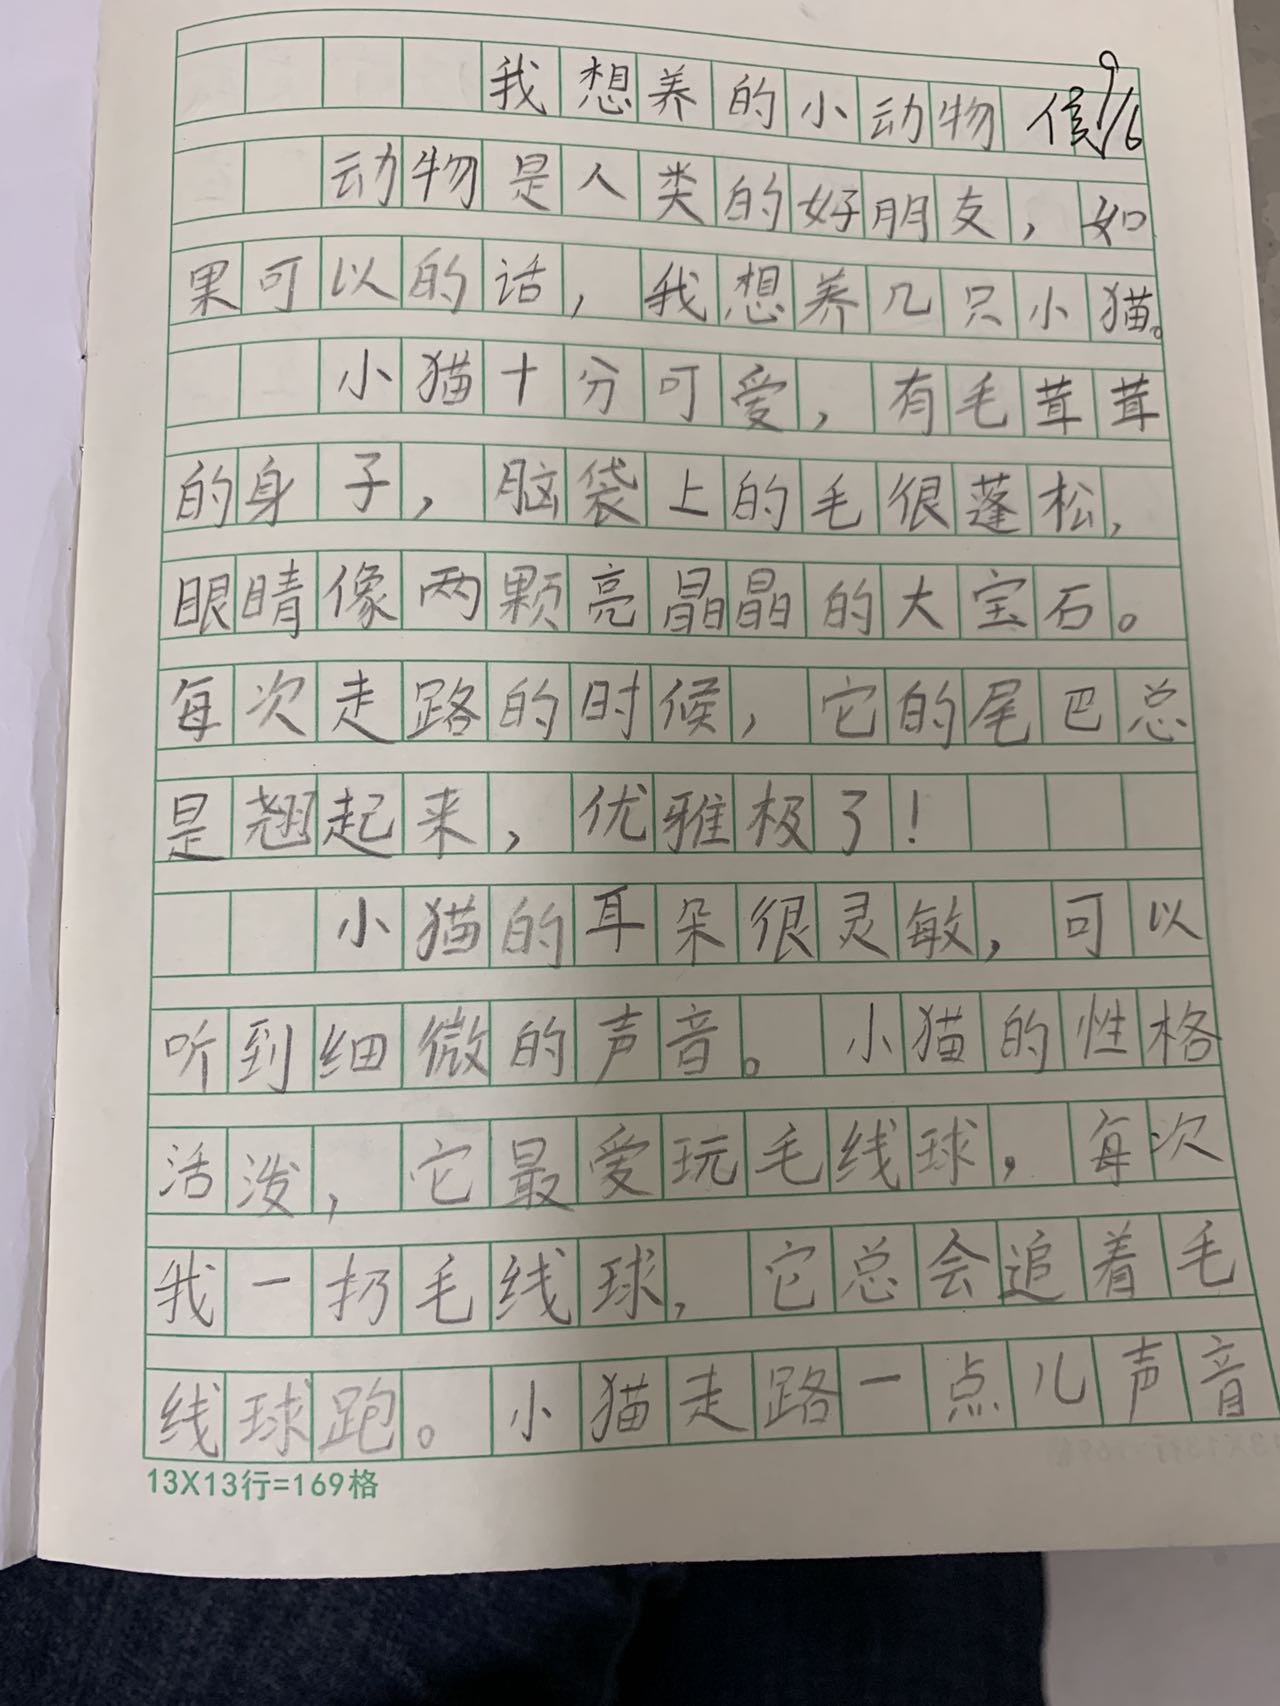 我想养的小动物 侯9/6
动物是人类的好朋友，如
果可以的话，我想养几只小猫。
小猫十分可爱，有毛茸茸
的身子，脑袋上的毛很蓬松，
眼睛像两颗亮晶晶的大宝石。
每次走路的时候，它的尾巴总
是翘起来，优雅极了！
小猫的耳朵很灵敏，可以
听到细微的声音。小猫的性格
活泼，它最爱玩毛线球，每次
我一扔毛线球，它总会追着毛
线球跑。小猫走路一点儿声音
13X13行=169格